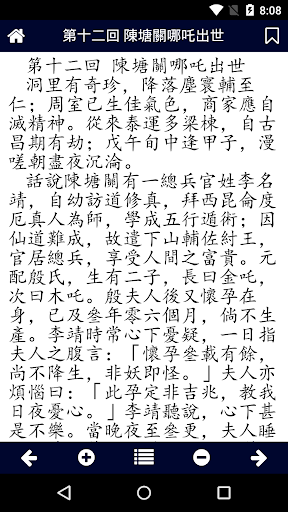 8:08
第十二回 陳塘關哪吒出世
第十二回 陳塘關哪吒出世
洞里有奇珍，降落塵寰輔至
仁；周室已生佳氣色，商家應自
滅精神。從來泰運多梁棟，自古
昌期有劫；戊午旬中逢甲子，漫
嗟朝盡夜沉淪。
話說陳塘關有一總兵官姓李名
靖，自幼訪道修真，拜西崑崙度
厄真人為師，學成五行遁術；因
仙道難成，故遣下山輔佐紂王，
官居總兵，享受人間之富貴。元
配殷氏，生有二子，長曰金吒，
次曰木吒。殷夫人後又懷孕在
身，已及叁年零六個月，倘不生
產。李靖時常心下憂疑，一日指
夫人之腹言：「懷孕叁載有餘，
尚不降生，非妖即怪。」夫人亦
煩惱曰：「此孕定非吉兆，教我
日夜憂心。」李靖聽說，心下甚
是不樂。當晚夜至叁更，夫人睡